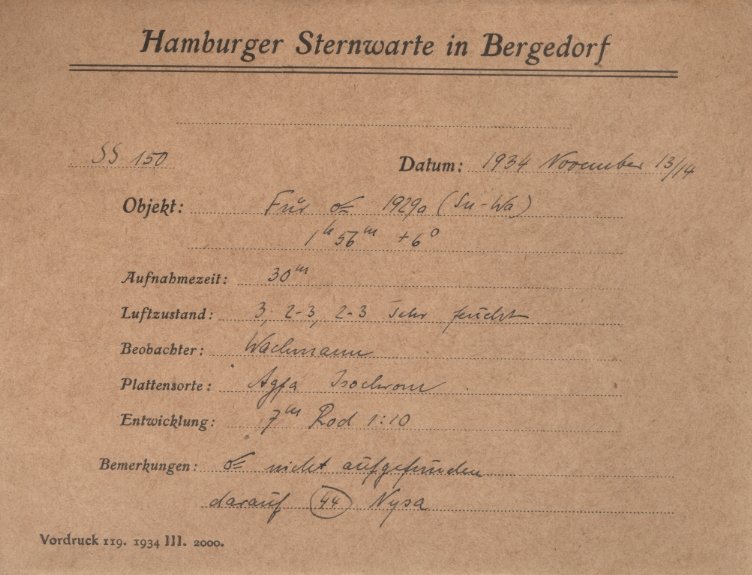 Hamburger Sternwarte in Bergedorf
SS 150 Datum: 1934 November 13/14
Objekt: Für ☄ 1929a (Su-Wa)
1h 56m +6°
Aufnahmezeit: 30m
Luftzustand: 3, 2-3, 2-3 Sehr feucht
Beobachter: Wachmann
Plattensorte: Agfa Isochrom
Entwicklung: 7m Rod 1:10
Bemerkungen: ☄ nicht aufgefunden
darauf (44) Nysa
Vordruck 119. 1934 III. 2000.